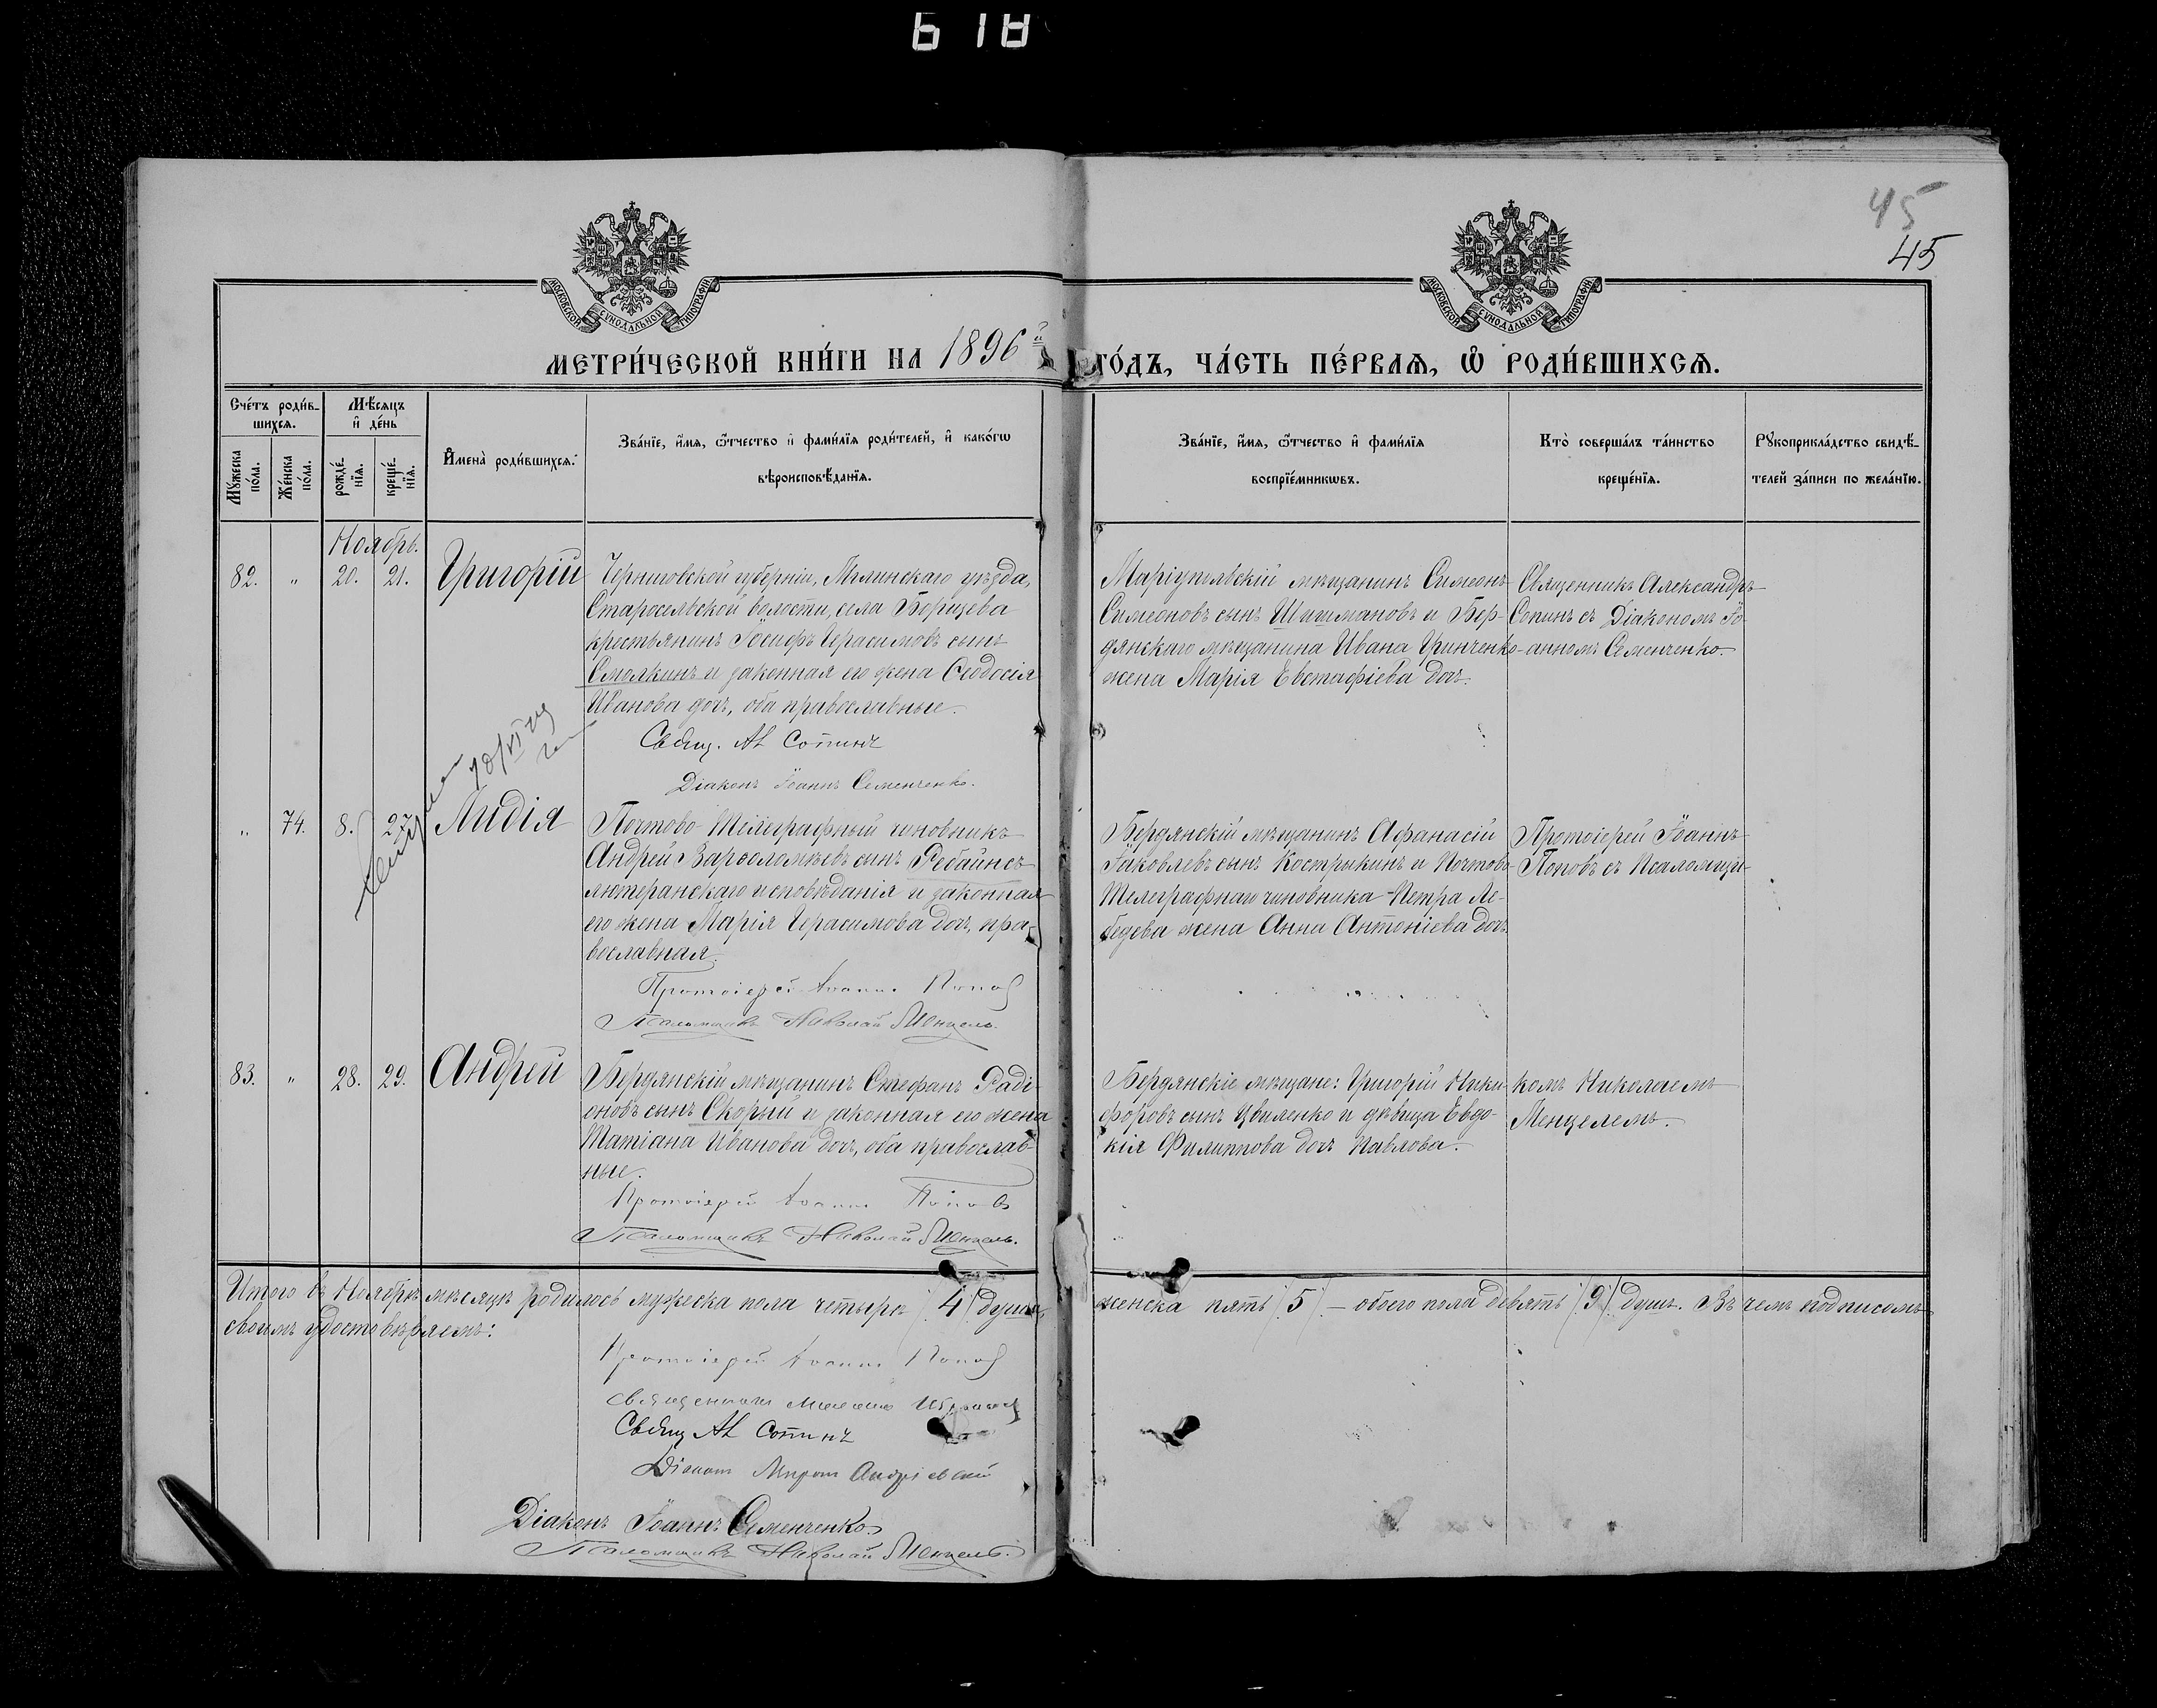 618
45
45
МОСКОВСКОЙ СѴНОДАЛЬНОЙ ТИПОГРАФІИ
МОСКОВСКОЙ СѴНОДАЛЬНОЙ ТИПОГРАФІИ
МЕТРИ́ЧЕСКОЙ КНИ́ГИ НА 1896й ГО́ДЪ, ЧА́СТЬ ПЕ́РВАѦ, Ѡ҆ РОДИ́ВШИХСѦ.
Сче́тъ роди́в-
шихсѧ.
Мѣ́сѧцъ
и҆ де́нь
Мꙋ́жеска
по́ла.
Же́нска
по́ла.
рожде́-
нїѧ.
креще́-
нїѧ.
И҆мена̀ роди́вшихсѧ.
Зва́нїе, и҆́мѧ, ѻ҆́тчество и҆ фами́лїѧ роди́телей, и҆ како́гѡ
вѣроисповѣ́данїѧ.
Зва́нїе, и҆́мѧ, ѻ҆́тчество и҆ фами́лїѧ
воспрїе́мникѡвъ.
Кто̀ соверша́лъ та́инство
креще́нїѧ.
Рꙋкоприкла́дство свидѣ́-
телей за́писи по жела́нїю.
Ноябрь.
82. " 20. 21. Григорій
Черниговской губерніи, Мглинскаго уѣзда,
Старосельской волости, села Борщева
крестьянинъ Іосифъ Герасимовъ сынъ
Смолкинъ и законная его жена Ѳеодосія
Иванова дочь, оба православные.
Свящ. Ал Сопинъ
Діаконъ Іоаннъ Семенченко.
Маріупольскій мѣщанинъ Симеонъ
Симеоновъ сынъ Шишмановъ и Бер-
дянскаго мѣщанина Ивана Гринченко
жена Марія Евстафіева дочь.
Священникъ Александръ
Сопинъ съ Діакономъ Іо-
анномъ Семенченко.
" 74. 8. 27. Лидія
Почтово-Телеграфный чиновникъ
Андрей Варѳоломѣевъ сынъ Ребайнсъ
лютеранскаго исповѣданія и законная
его жена Марія Герасимова дочь, пра-
вославная.
Протоіерей Іоаннъ Поповъ
Псаломщикъ Николай Менцель.
Бердянскій мѣщанинъ Афанасій
Іаковлевъ сынъ Кострыкинъ и Почтово-
Телеграфнаго чиновника Петра Ле-
бедева жена Анна Антоніева дочь.
Протоіерей Іоаннъ
Поповъ съ Псаломщи-
83. " 28. 29. Андрей
Бердянскій мѣщанинъ Стефанъ Раді-
оновъ сынъ Скорый и законная его жена
Татіана Иванова дочь, оба православ-
ные.
Протоіерей Іоаннъ Поповъ
Псаломщикъ Николай Менцель.
Бердянскіе мѣщане: Григорій Ники-
форовъ сынъ Цвиленко и дѣвица Евдо-
кія Филиппова дочь Павлова.
комъ Николаемъ
Менцелемъ.
Итого въ Ноябрѣ мѣсяцѣ родилось мужеска пола четыре /4/ души, женска пять /5/ – обоего пола девять /9/ душъ. Въ чемъ подписомъ
своимъ удостовѣряемъ:
Протоіерей Іоаннъ Поповъ
Священникъ
Свящ Ал Сопинъ
Діаконъ Миронъ Андріевскій
Діаконъ Іоаннъ Семенченко
Псаломщикъ Николай Менцель.